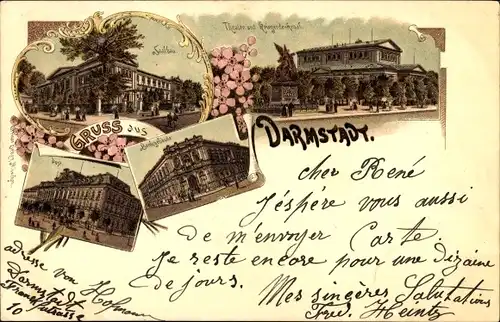 Saalbau
Theater und Kriegerdenkmal.
GRUSS aus
DARMSTADT.
Bankgebäude
Post
cher René
J'éspére vous aussi
de m'envoyer Carte.
Je reste encore pour une dizaine
de jours.
Mes singères Salutations
Fred. Heintz
adresse von Hofmann
Darmstadt
10